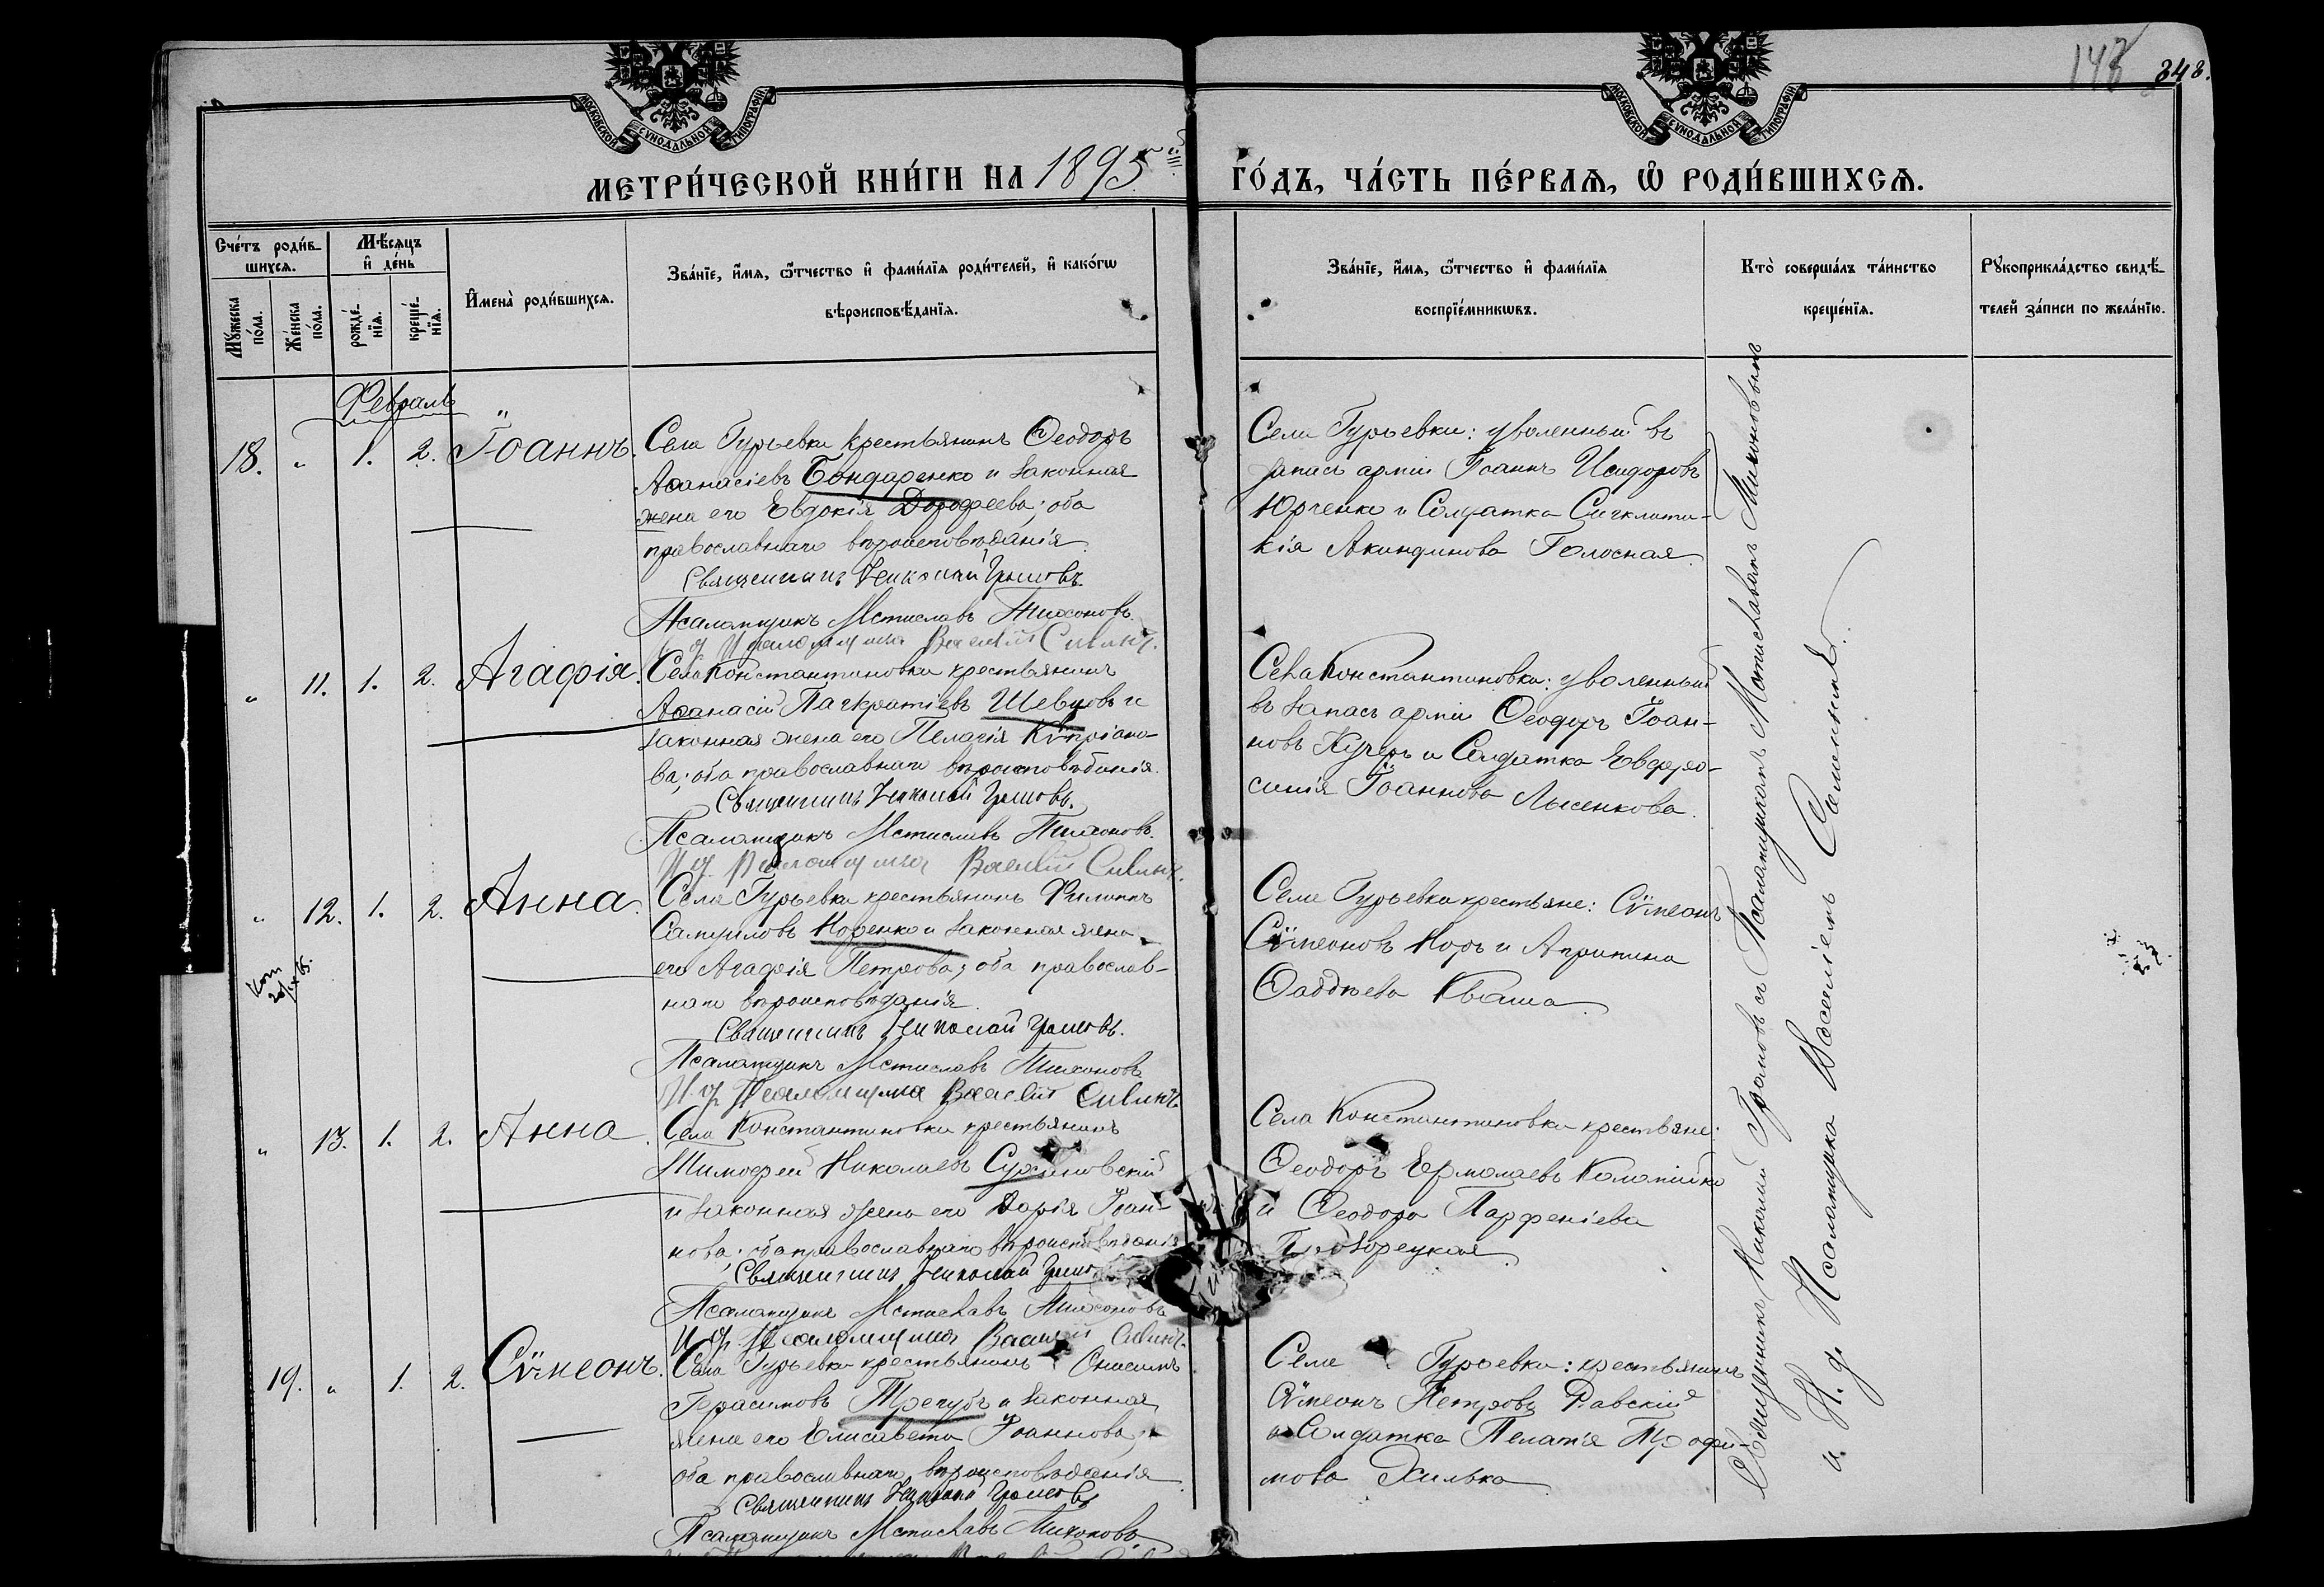 МОСКОВСКОЙ СѴНОДАЛЬНОЙ ТИПОГРАФІИ
МОСКОВСКОЙ СѴНОДАЛЬНОЙ ТИПОГРАФІИ
148 348.
МЕТРИ́ЧЕСКОЙ КНИ́ГИ НА 1895
ГО́ДЪ, ЧА́СТЬ ПЕ́РВАѦ, Ѡ҆ РОДИ́ВШИХСѦ.
Сче́тъ роди́в-
шихсѧ.
Мѣ́сѧцъ
и҆ де́нь
Мꙋ́жеска
по́ла.
Же́нска
по́ла.
рожде́-
нїѧ.
креще́-
нїѧ.
И҆мена̀ роди́вшихсѧ.
Зва́нїе, и҆́мѧ, ѻ҆́тчество и҆ фами́лїѧ роди́телей, и҆ како́гѡ
вѣроисповѣ́данїѧ.
Зва́нїе, и҆́мѧ, ѻ҆́тчество и҆ фами́лїѧ
воспрїе́мникѡвъ.
Кто̀ соверша́лъ та́инство
креще́нїѧ.
Рꙋкоприкла́дство свидѣ́-
телей за́писи по жела́нїю.
Февраль
18. " 1. 2. Іоаннъ.
Села Гурьевки крестьянинъ Ѳеодоръ
Аѳанасіевъ Бондаренко и законная
жена его Евдокія Дороѳеева; оба
православнаго вѣроисповѣданія.
Священникъ Николай
Псаломщикъ Мстиславъ Тихоновъ.
И. д. Псаломщика Василій
Села Гурьевки: уволенный въ
запасъ арміи Іоаннъ Исидоровъ
Юрченко и Солдатка Сигклити-
кія Акиндинова Голосная.
" 11. 1. 2. Агафія.
Села Константиновки крестьянинъ
Аѳанасій Панкратіевъ Шевцовъ и
законная жена его Пелагія Кѵпріано-
ва; оба православнаго вѣроисповѣданія.
Священникъ Николай
Псаломщикъ Мстиславъ Тихоновъ.
И. д. Псаломщика Василій
Села Константиновки: уволенный
въ запасъ арміи Ѳеодоръ Іоан-
новъ Кучеръ и Солдатка Евфро-
синія Іоаннова Лысенкова.
" 12. 1. 2. Анна.
Села Гурьевки крестьянинъ Филиппъ
Самуиловъ Норенко и законная жена
его Агафія Петрова; оба православ-
наго вѣроисповѣданія.
Священникъ Николай
Псаломщикъ Мстиславъ Тихоновъ
И. д. Псаломщика Василій
Села Гурьевки крестьяне: Сѵмеонъ
Сѵмеоновъ Норъ и Агрипина
Ѳаддѣева Кваша.
" 13. 1. 2. Анна.
Села Константиновки крестьянинъ
Тимофей Николаевъ
и законная жена его Дарія Іоан-
нова; оба православнаго вѣроисповѣданія
Священникъ Николай
Псаломщикъ Мстиславъ Тихоновъ
И. д. Псаломщика Василій
Села Константиновки крестьяне:
Ѳеодоръ Ермолаевъ Коломійко
и Ѳеодора Парфеніева
19. " 1. 2. Сѵмеонъ.
Села Гурьевки крестьянинъ Онисимъ
Герасимовъ Трегубъ и законная
жена его Елисавета Іоаннова;
оба православнаго вѣроисповѣданія
Священникъ Николай
Псаломщикъ Мстиславъ Тихоновъ
Села Гурьевки: крестьянинъ
Сѵмеонъ Петровъ Равскій
и Солдатка Пелагія Трофи-
мова Хилько
Священникъ Николай съ Псаломщикомъ Мстиславомъ Тихоновымъ
и И. д. Псаломщика Василіемъ